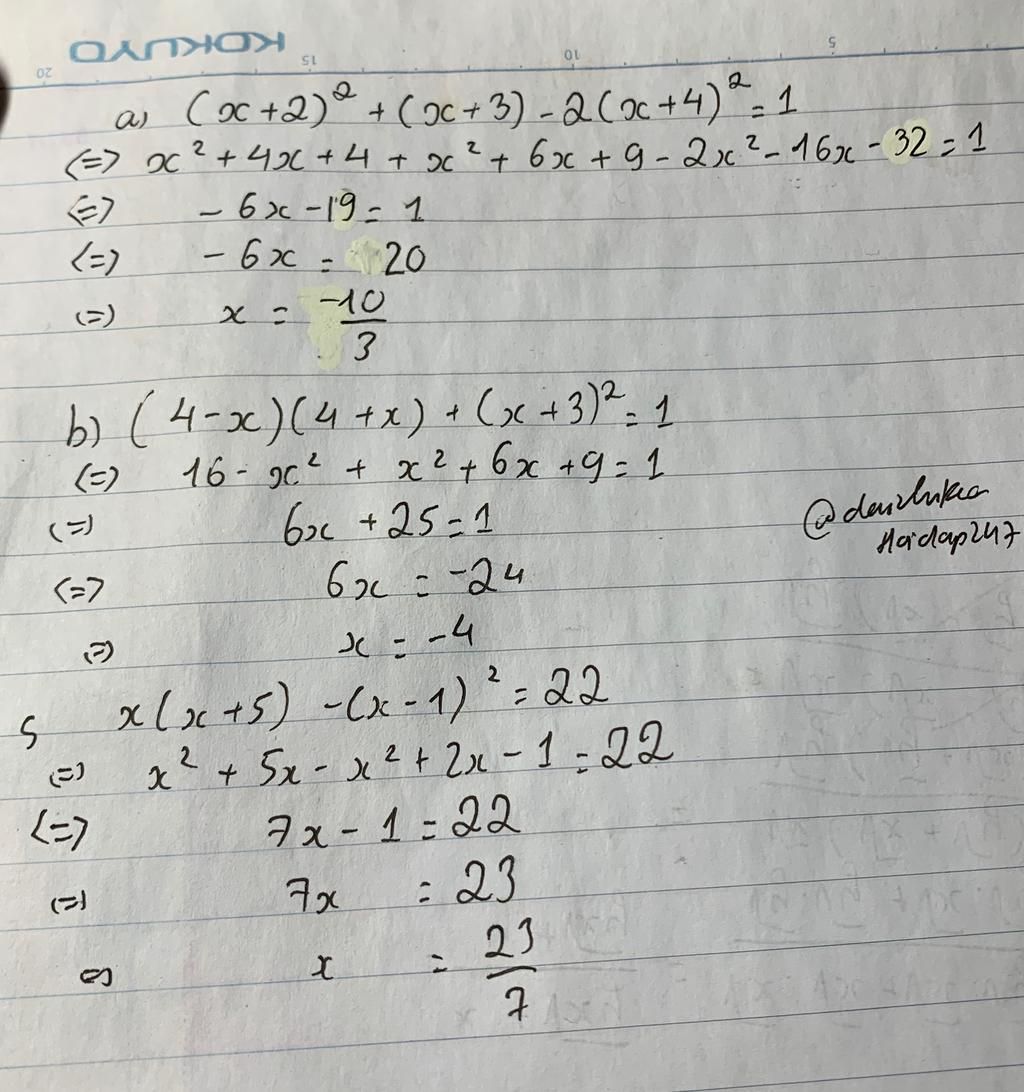 KOKUYO
5 10 15 20
a) (x+2)² + (x+3) - 2(x+4)² = 1
<=> x² + 4x + 4 + x² + 6x + 9 - 2x² - 16x - 32 = 1
<=> - 6x - 19 = 1
<=> - 6x = 20
(=) x = -10/3
b) (4-x)(4+x) + (x+3)² = 1
(=) 16 - x² + x² + 6x + 9 = 1
(=) 6x + 25 = 1
<=> 6x = -24
(=) x = -4
x(x+5) - (x-1)² = 22
(=) x² + 5x - x² + 2x - 1 = 22
<=> 7x - 1 = 22
(=) 7x = 23
(=) x = 23/7